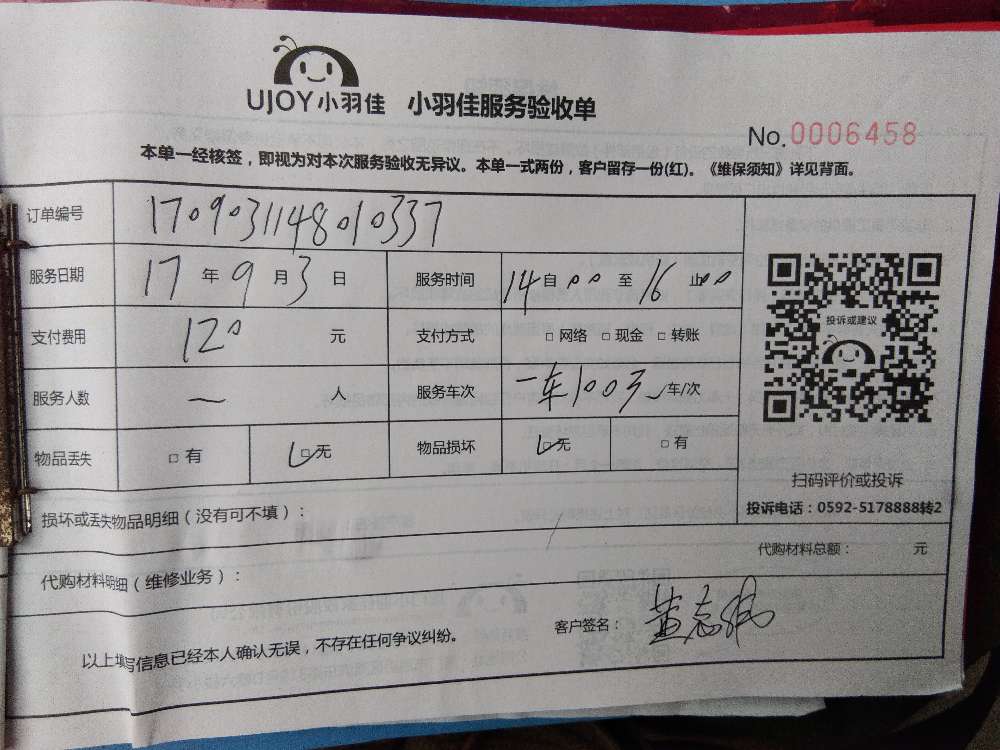 UJOY小羽佳 小羽佳服务验收单
No.0006458
本单一经核签，即视为对本次服务验收无异议。本单一式两份，客户留存一份(红)。《维保须知》详见背面。
订单编号 1709031148010337
服务日期 17 年 9 月 3 日 服务时间 14 自 00 至 16 止 00
支付费用 120 元 支付方式 □ 网络 □ 现金 □ 转账
服务人数 一 人 服务车次 一车1003 车/次
物品丢失 □ 有 □ 无 物品损坏 □ 无 □ 有
投诉或建议
扫码评价或投诉
投诉电话：0592-5178888转2
损坏或丢失物品明细（没有可不填）： /
代购材料总额： 元
代购材料明细（维修业务）：
客户签名： 黄志
以上填写信息已经本人确认无误，不存在任何争议纠纷。